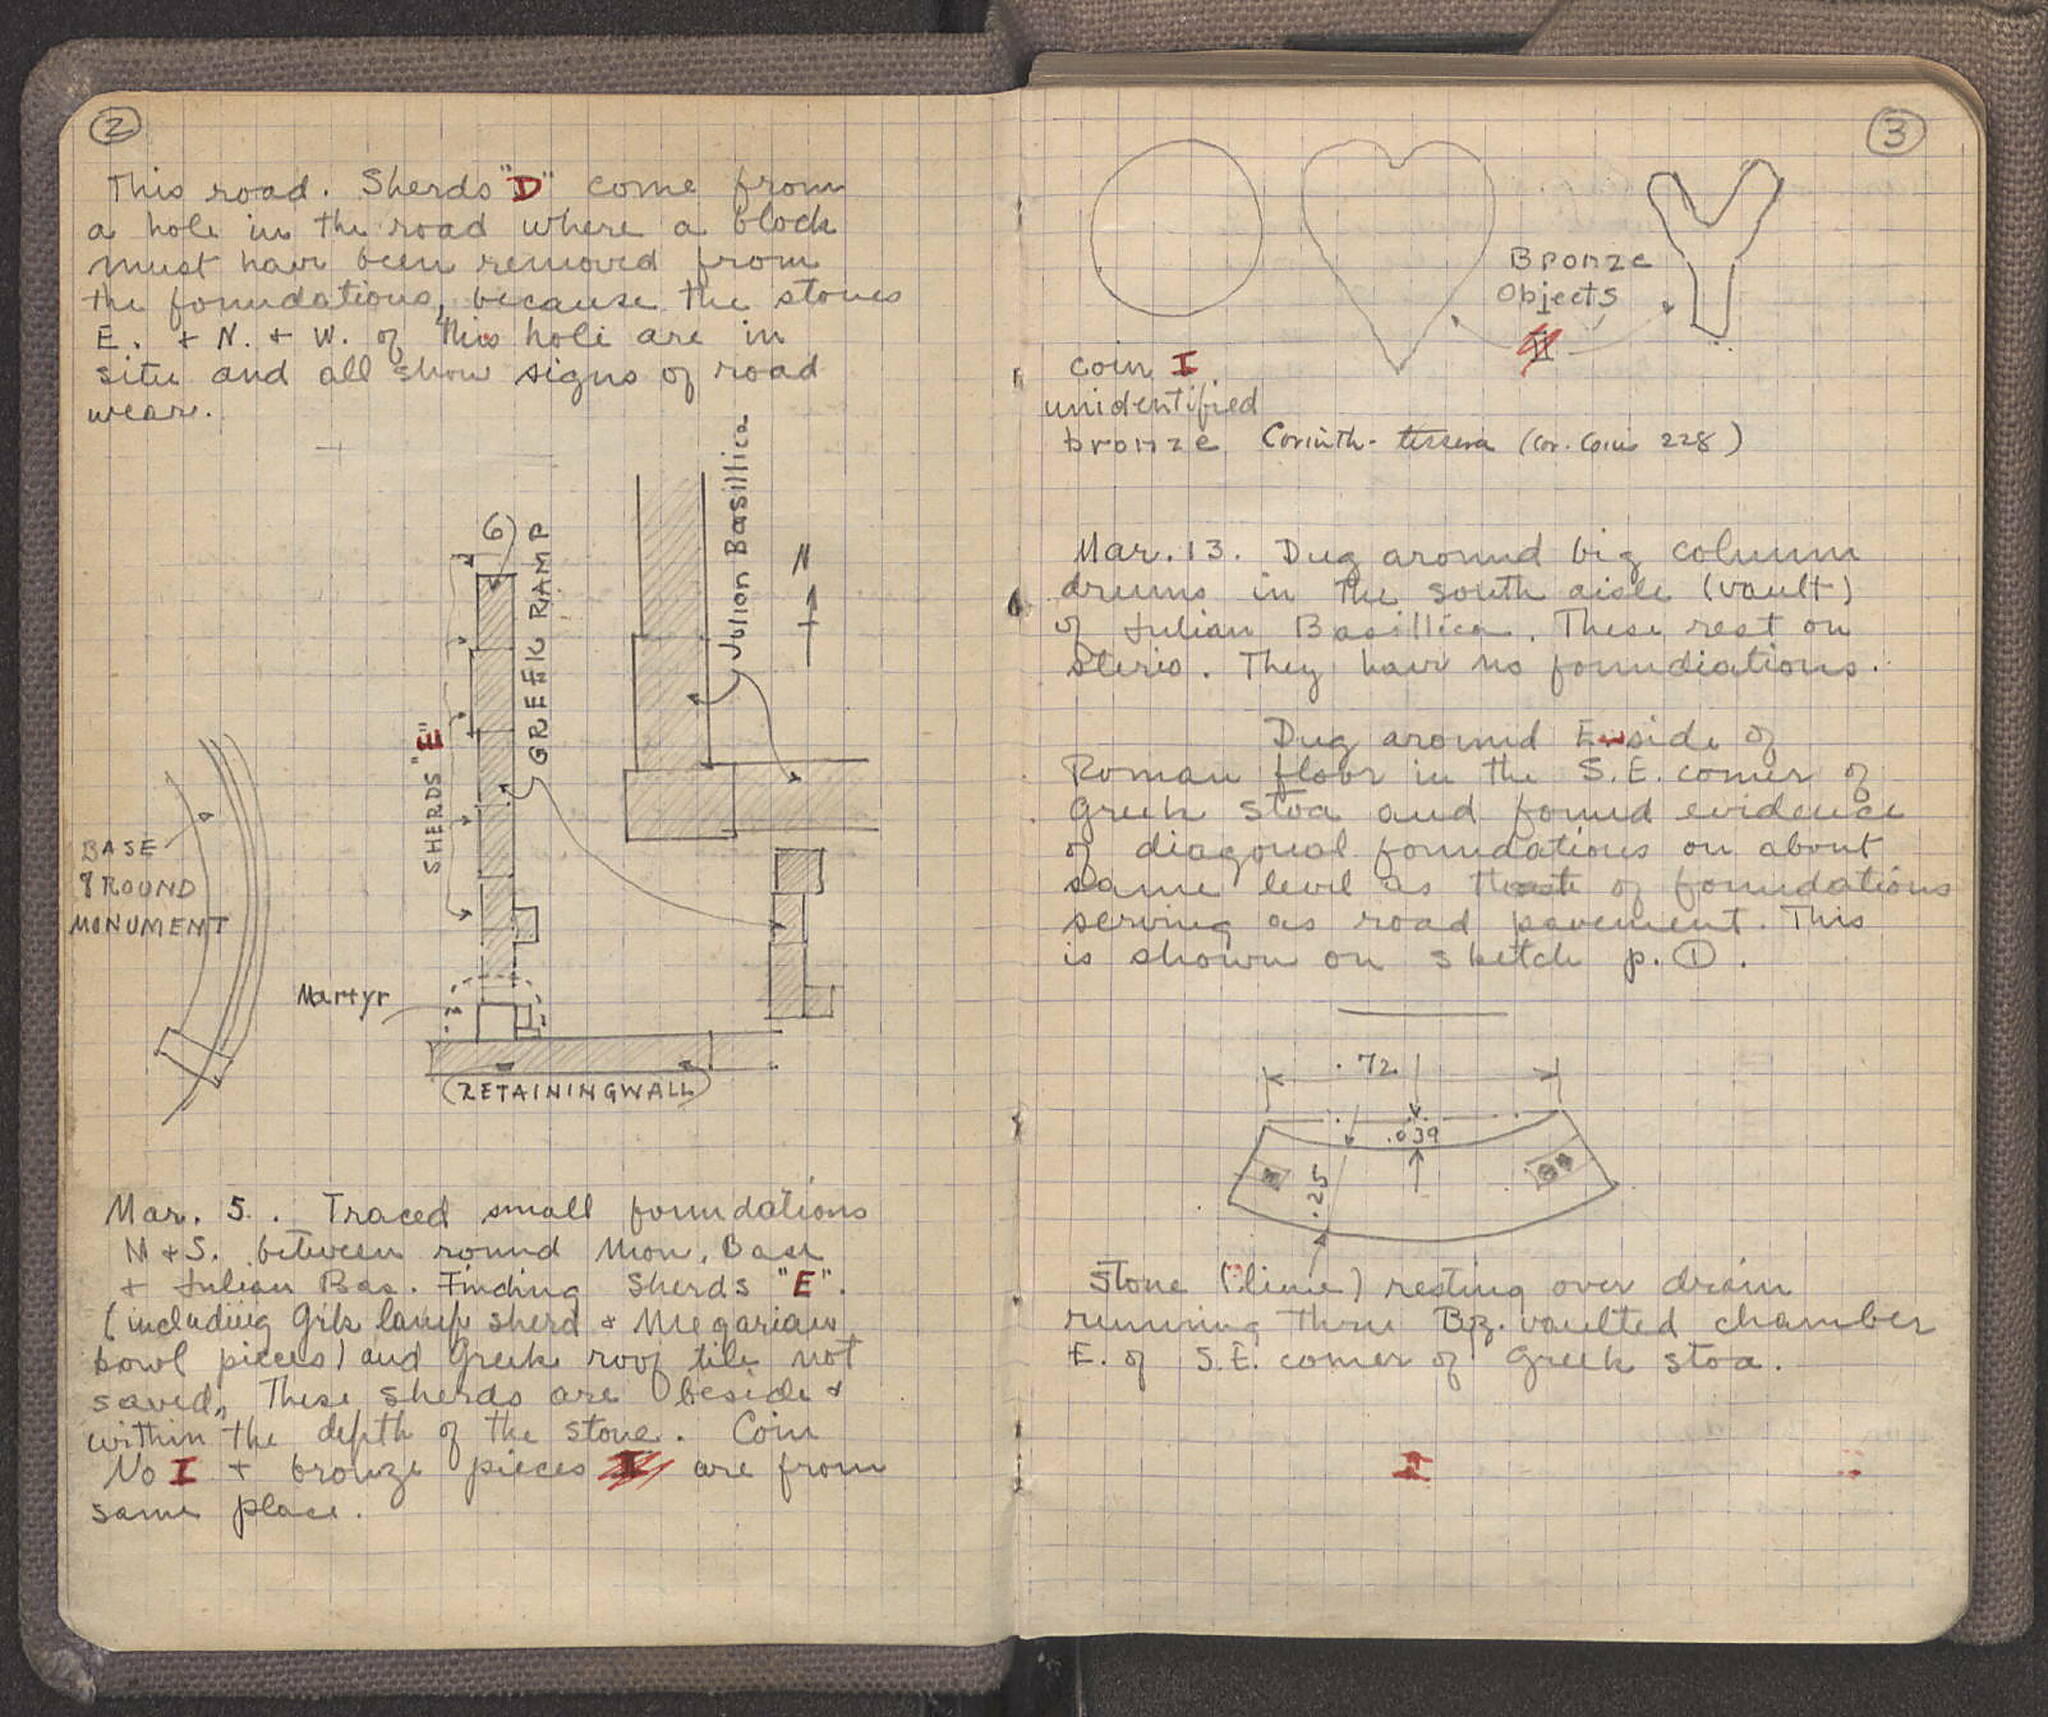 2
This road. Sherds "D" come from
a hole in the road where a block
must have been removed from
the foundations, because the stones
E. + N. + W. of this hole are in
situ and all show signs of road
wear.
6)
GREEK RAMP
Julian Basillica
N
SHERDS "E"
BASE
ROUND
MONUMENT
Martyr
(RETAINING WALL)
Mar. 5. Traced small foundations
N + S. between round Mon. Base
+ Julian Bas. Finding Sherds "E".
(including Grk lamp sherd + Megarian
bowl pieces) and Greek roof tile not
saved. These sherds are beside +
within the depth of the stone. Coin
No I + bronze pieces are from
same place.
3
Bronze
Objects
II
coin I
unidentified
bronze Corinth - tessera (Cor. Coins 228)
Mar. 13. Dug around big column
drums in the south aisle (vault)
of Julian Basillica. These rest on
stereo. They have no foundiations.
Dug around E side of
Roman floor in the S.E. corner of
Greek stoa and found evidence
of diagonal foundations on about
same level as of foundations
serving as road pavement. This
is shown on sketch p. 1.
.72
.039
.25
Stone (lime) resting over drain
running thru Byz. vaulted chamber
E. of S.E. corner of Greek stoa.